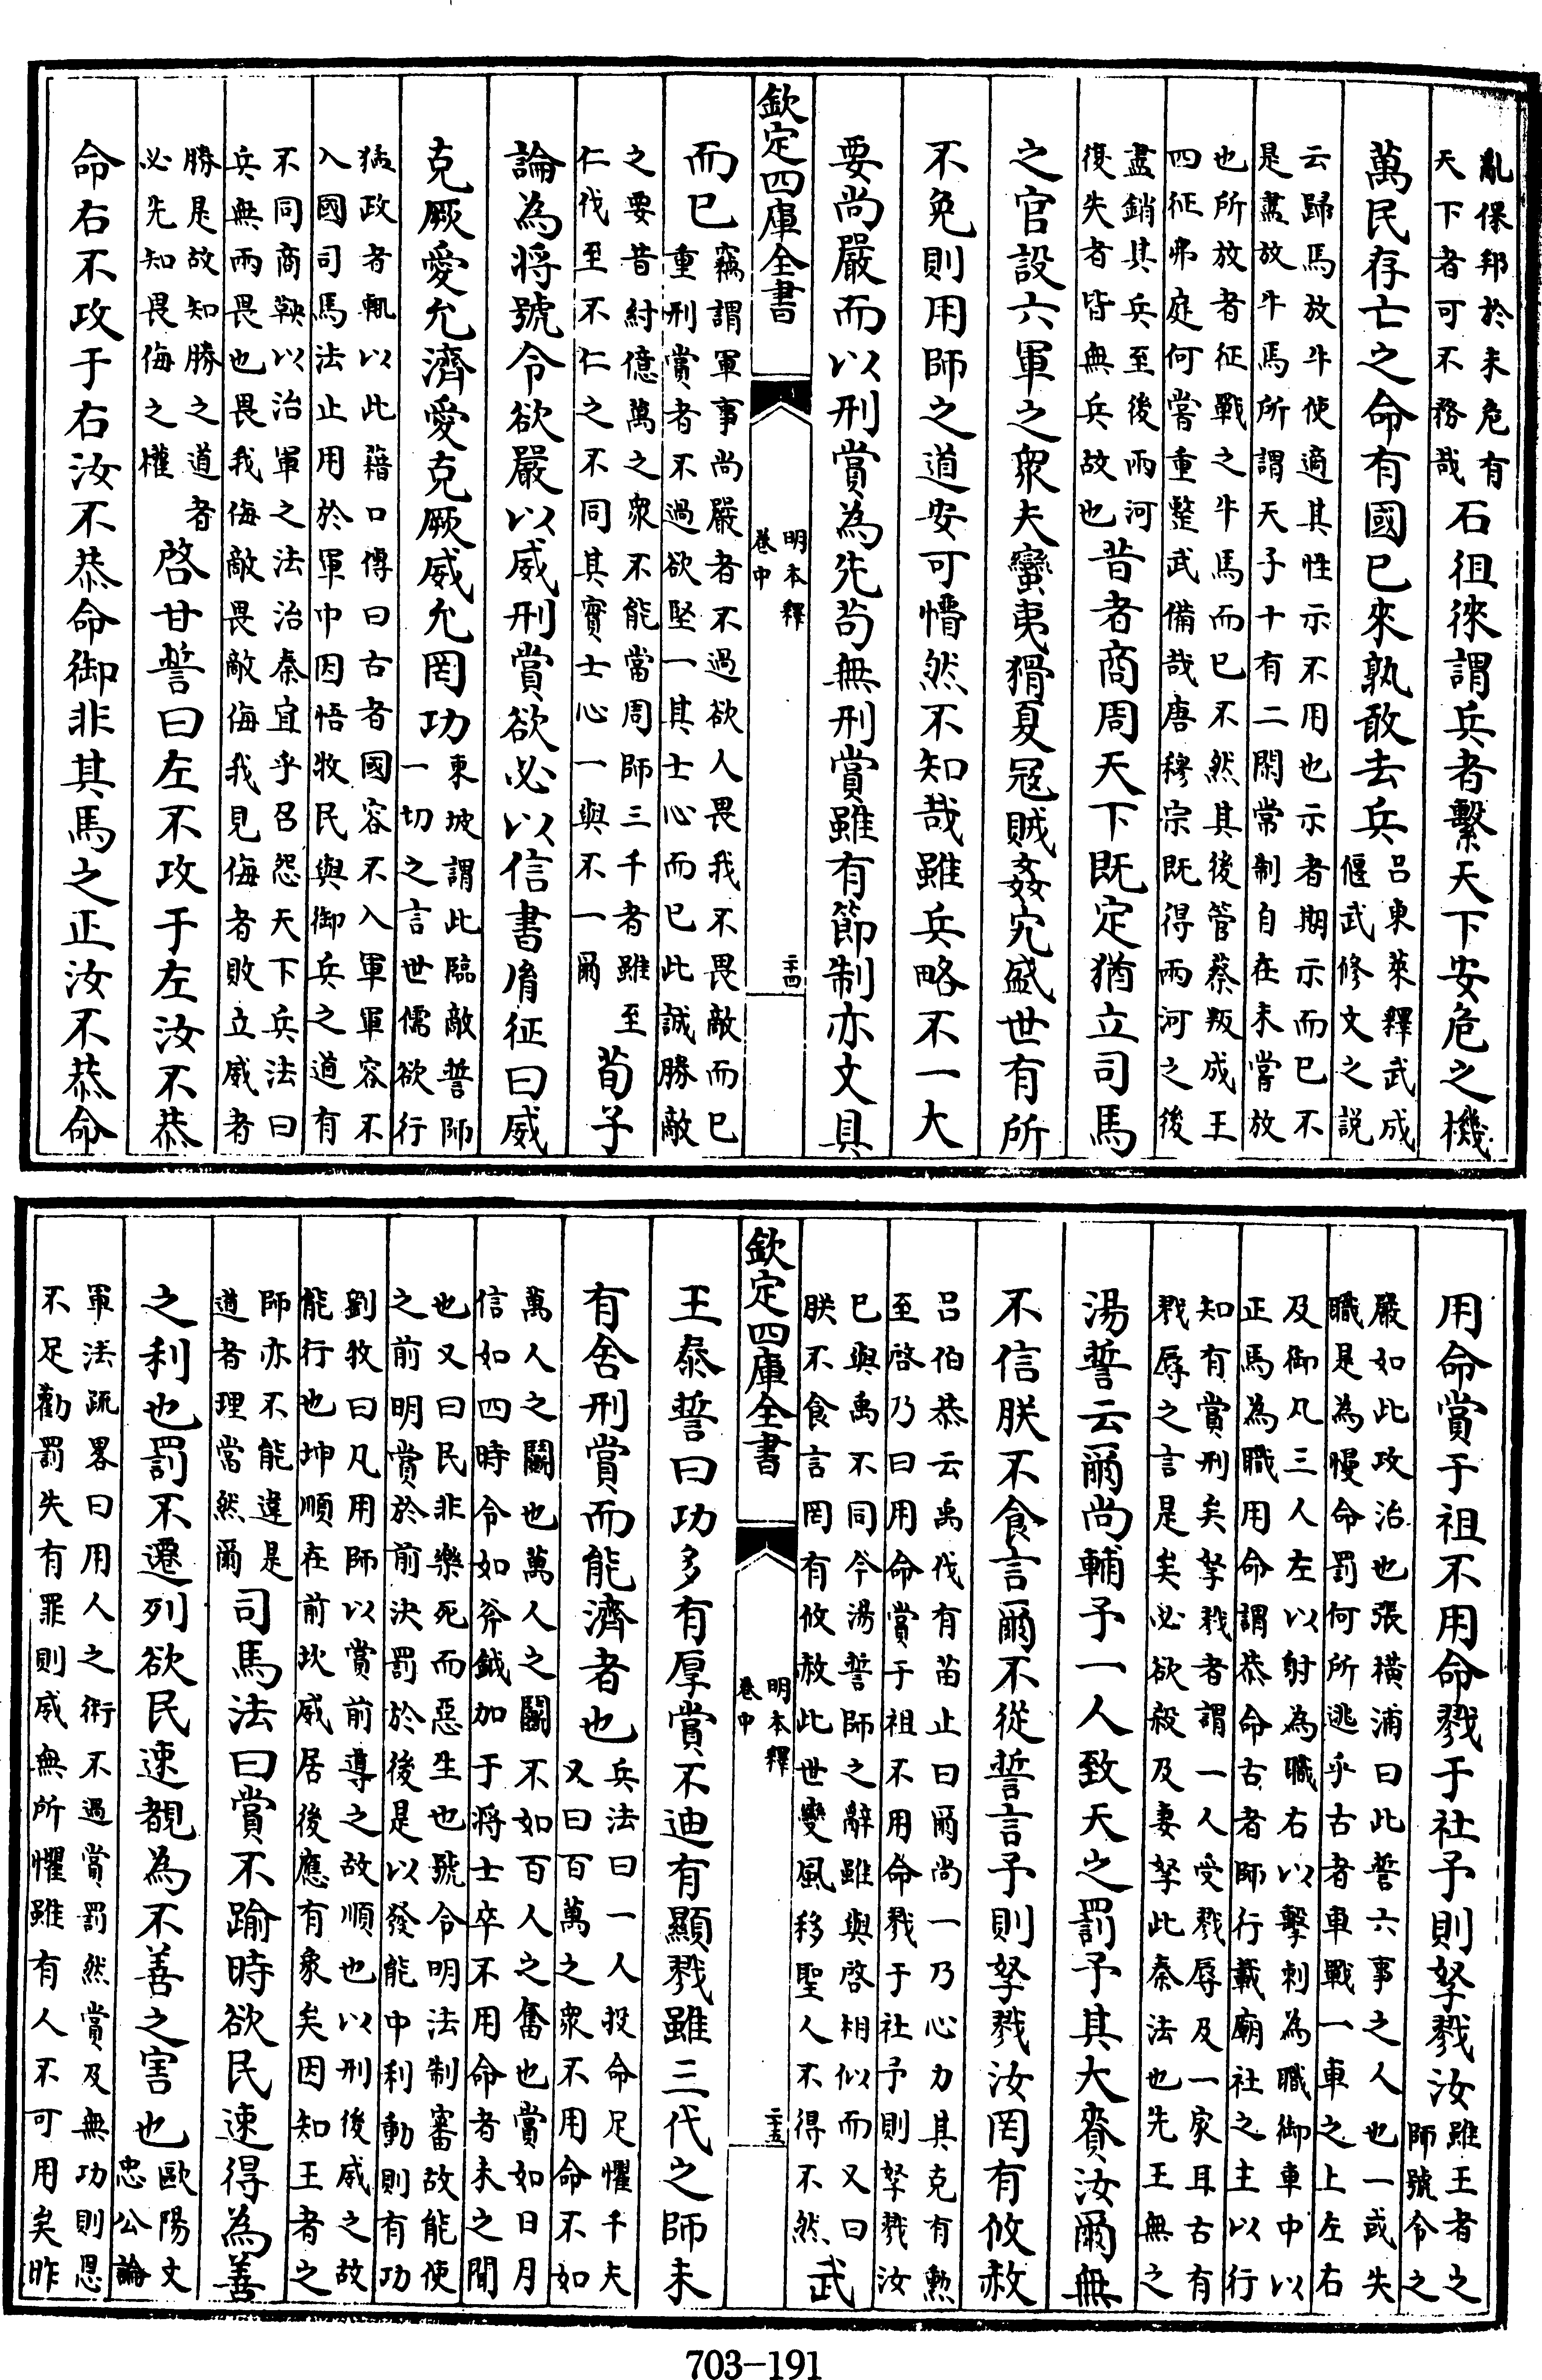 亂保邦於未危有
天下者可不務哉
石徂徠謂兵者繫天下安危之機
萬民存亡之命有國已來孰敢去兵
呂東萊釋武成
偃武修文之説
云歸馬放牛使適其性示不用也示者期示而已不
是盡放牛馬所謂天子十有二閑常制自在未嘗放
也所放者征戰之牛馬而已不然其後管蔡叛成王
四征弗庭何嘗重整武備哉唐穆宗既得兩河之後
盡銷其兵至後兩河
復失者皆無兵故也
昔者商周天下既定猶立司馬
之官設六軍之衆夫蠻夷猾夏冦賊姦宄盛世有所
不免則用師之道安可懵然不知哉雖兵略不一大
要尚嚴而以刑賞為先茍無刑賞雖有節制亦文具
欽定四庫全書
明本釋
卷中
二十四
而已
竊謂軍事尚嚴者不過欲人畏我不畏敵而已
重刑賞者不過欲堅一其士心而已此誠勝敵
之要昔紂億萬之衆不能當周師三千者雖至
仁伐至不仁之不同其實士心一與不一爾
荀子
論為將號令欲嚴以威刑賞欲必以信書胤征曰威
克厥愛允濟愛克厥威允罔功
東坡謂此臨敵誓師
一切之言世儒欲行
猛政者輒以此藉口傳曰古者國容不入軍軍容不
入國司馬法止用於軍中因悟牧民與御兵之道有
不同商鞅以治軍之法治秦宜乎召怨天下兵法曰
兵無兩畏也畏我侮敵畏敵侮我見侮者敗立威者
勝是故知勝之道者
必先知畏侮之權
啓甘誓曰左不攻于左汝不恭
命右不攻于右汝不恭命御非其馬之正汝不恭命
用命賞于祖不用命戮于社予則孥戮汝
雖王者之
師號令之
嚴如此攻治也張橫浦曰此誓六事之人也一或失
職是為慢命罰何所逃乎古者車戰一車之上左右
及御凡三人左以射為職右以擊刺為職御車中以
正馬為職用命謂恭命古者師行載廟社之主以行
知有賞刑矣孥戮者謂一人受戮辱及一家耳古有
戮辱之言是矣必欲殺及妻孥此秦法也先王無之
湯誓云爾尚輔予一人致天之罰予其大賚汝爾無
不信朕不食言爾不從誓言予則孥戮汝罔有攸赦
呂伯恭云禹伐有苗止曰爾尚一乃心力其克有勲
至啓乃曰用命賞于祖不用命戮于社予則孥戮汝
已與禹不同今湯誓師之辭雖與啓相似而又曰
朕不食言罔有攸赦此世變風移聖人不得不然
武
欽定四庫全書
明本釋
卷中
二十五
王泰誓曰功多有厚賞不迪有顯戮雖三代之師未
有舍刑賞而能濟者也
兵法曰一人投命足懼千夫
又曰百萬之衆不用命不如
萬人之鬭也萬人之鬭不如百人之奮也賞如日月
信如四時令如斧鉞加于將士卒不用命者未之聞
也又曰民非樂死而惡生也號令明法制審故能使
之前明賞於前決罰於後是以發能中利動則有功
劉牧曰凡用師以賞前導之故順也以刑後威之故
能行也坤順在前坎威居後應有象矣因知王者之
師亦不能違是
道者理當然爾
司馬法曰賞不踰時欲民速得為善
之利也罰不遷列欲民速覩為不善之害也
歐陽文
忠公論
軍法疏畧曰用人之術不過賞罰然賞及無功則恩
不足勸罰失有罪則威無所懼雖有人不可用矣昨
703-191